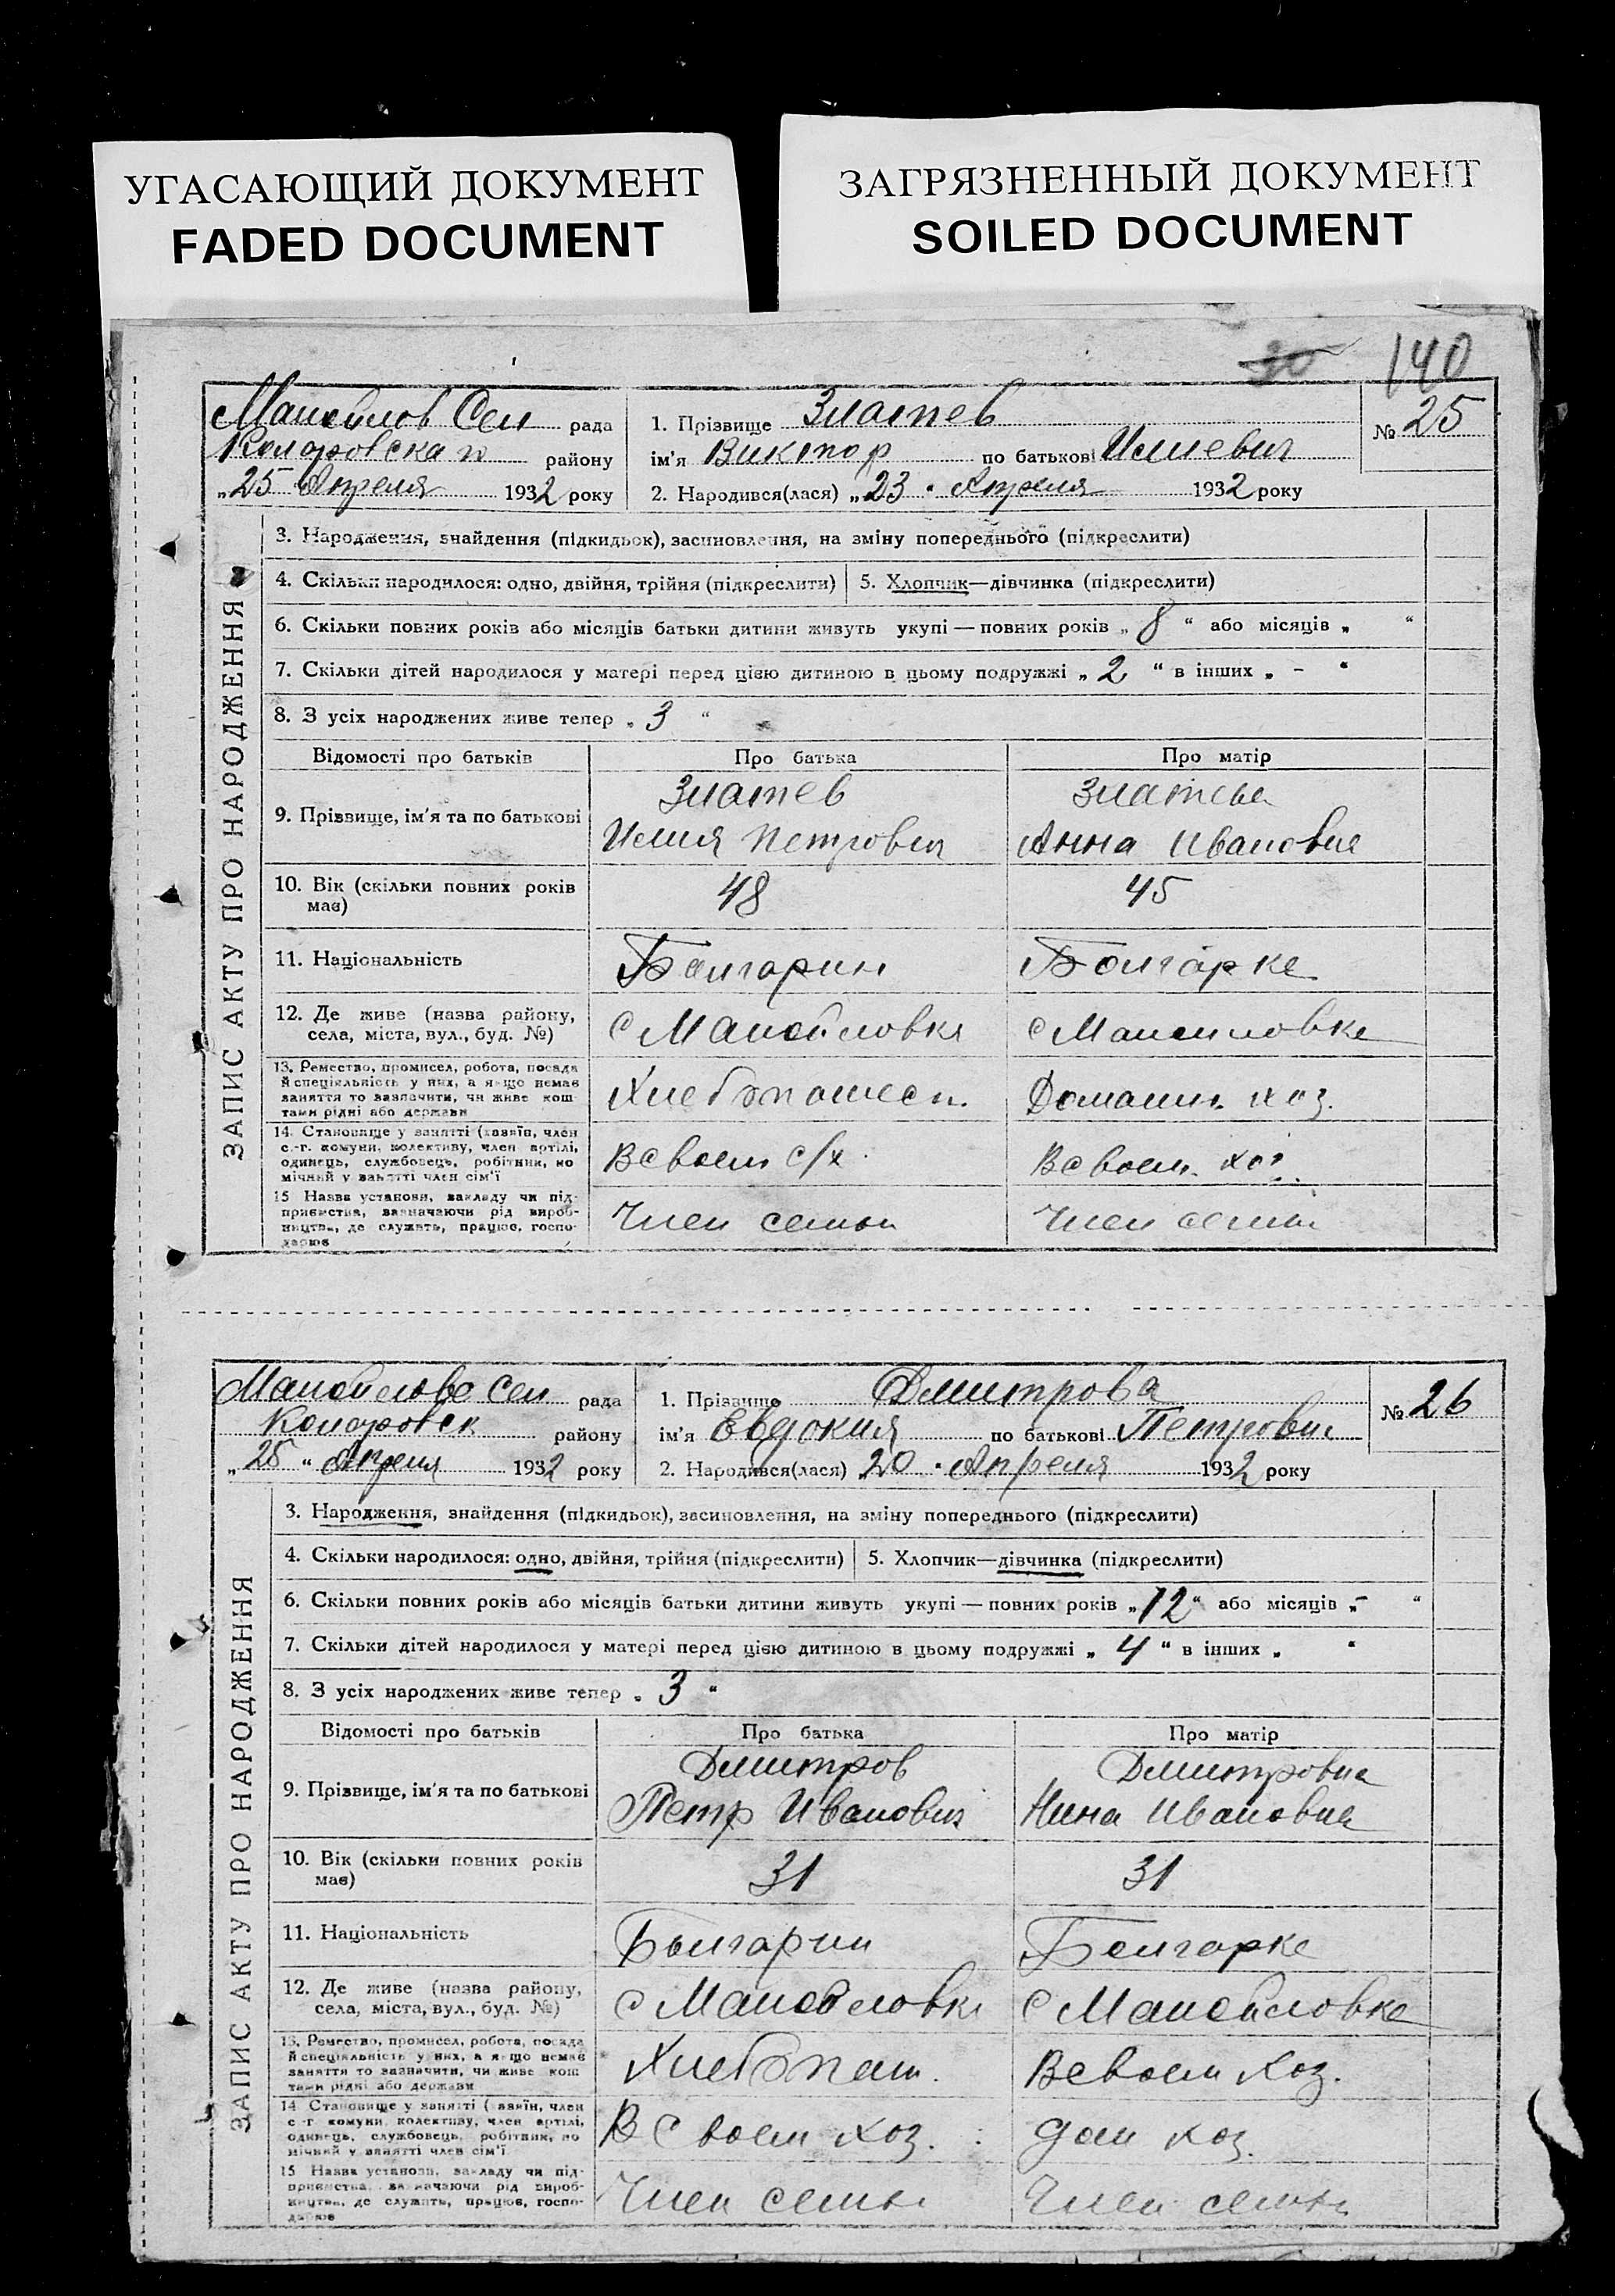 УГАСАЮЩИЙ ДОКУМЕНТ
FADED DOCUMENT
ЗАГРЯЗНЕННЫЙ ДОКУМЕНТ
SOILED DOCUMENT
30 140
Манойлов Сел рада
Коларовска району
„25 Апреля 1932 року
1. Прізвище Златев
ім'я Виктор по батькові Илиевич
2. Народився(лася) „23 " Апреля 1932 року
№ 25
ЗАПИС АКТУ ПРО НАРОДЖЕННЯ
3. Народження, знайдення (підкидьок), засиновлення, на зміну попереднього (підкреслити)
4. Скільки народилося: одно, двійня, трійня (підкреслити) 5. Хлопчик—дівчинка (підкреслити)
6. Скільки повних років або місяців батьки дитини живуть укупі — повних років „ 8 “ або місяців „ “
7. Скільки дітей народилося у матері перед цією дитиною в цьому подружжі „ 2 “ в інших „ - “
8. З усіх народжених живе тепер „ 3 “
Відомості про батьків Про батька Про матір
9. Прізвище, ім'я та по батькові
Златев
Илия Петрович
Златева
Анна Ивановна
10. Вік (скільки повних років
має)
48 45
11. Національність Болгарин Болгарке
12. Де живе (назва району,
села, міста, вул., буд. №)
с Манойловка с Манойловке
13. Ремество, промисел, робота, посада
й спеціяльність у них, а якщо немає
заняття то зазначити, чи живе кош
тами рідні або держави
Хлебопашец. Домашн. хоз.
14. Становище у занятті (хазяїн, член
с.-г. комуни, колективу, член артілі,
одинець, службовець, робітник, по
мічний у занятті член сім'ї
В своем с/х. В своем. хоз.
15 Назва установи, закладу чи під-
приємства, зазначаючи рід вироб-
ництва, де служить, працює, госпо-
дарює
Член семьи Член семьи
Манойлове Сел рада
Коларовск району
„ 25 “ Апреля 1932 року
1. Прізвище Дмитрова
ім'я Евдокия по батькові Петровна
2. Народився(лася) 20 " Апреля 1932 року
№ 26
ЗАПИС АКТУ ПРО НАРОДЖЕННЯ
3. Народження, знайдення (підкидьок), засиновлення, на зміну попереднього (підкреслити)
4. Скільки народилося: одно, двійня, трійня (підкреслити) 5. Хлопчик—дівчинка (підкреслити)
6. Скільки повних років або місяців батьки дитини живуть укупі — повних років „ 12 “ або місяців „ - “
7. Скільки дітей народилося у матері перед цією дитиною в цьому подружжі „ 4 “ в інших „ “
8. З усіх народжених живе тепер „ 3 “
Відомості про батьків Про батька Про матір
9. Прізвище, ім'я та по батькові
Дмитров
Петр Иванович
Дмитровна
Нина Ивановна
10. Вік (скільки повних років
має)
31 31
11. Національність Болгарин Болгарке
12. Де живе (назва району,
села, міста, вул., буд. №)
с Манойловка с Манойловке
13. Ремество, промисел, робота, посада
й спеціяльність у них, а якщо немає
заняття то зазначити, чи живе кош
тами рідні або держави
Хлебопаш. В своем Хоз.
14 Становище у занятті (хазяїн, член
с-г комуни, колективу, член артілі,
одинець, службовець, робітник, по
мічний у занятті член сім'ї
В своем хоз. дом хоз.
15 Назва установи, закладу чи під-
приємства, зазначаючи рід вироб-
ництва, де служить, працює, госпо-
дарює
Член семьи Член семьи